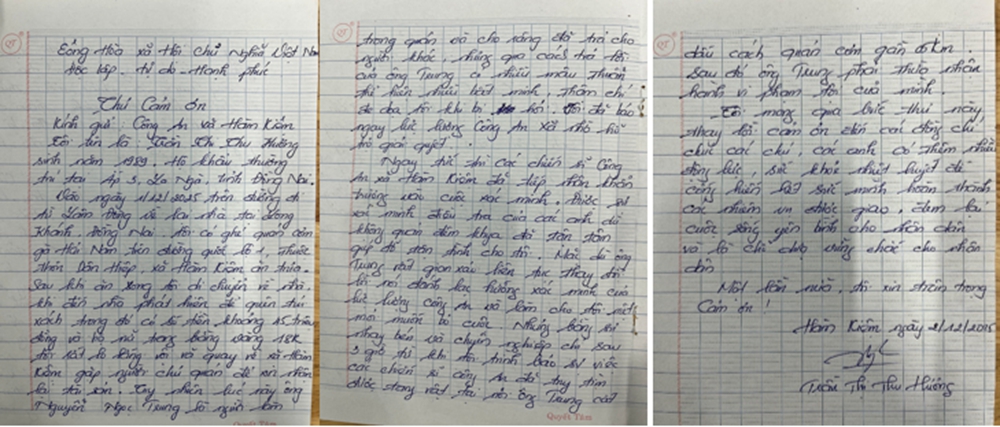 Cộng Hòa xã Hội chủ Nghĩa Việt Nam
Độc lập - Tự do - Hạnh phúc
Thư Cảm ơn
Kính gửi: Công An xã Hàm Kiệm
Tôi tên là: Trần Thị Thu Hương
sinh năm 1989. Hộ khẩu thường
trú tại Ấp 3, La Ngà, tỉnh Đồng Nai.
Vào ngày 1/12/2025 trên đường đi
từ Lâm Đồng về lại nhà tại
Khánh, Đồng Nai. Tôi có ghé quán cơm
gà Hải Nam bên đường quốc lộ 1, thuộc
thôn Dân Hiệp, xã Hàm Kiệm ăn trưa.
Sau khi ăn xong tôi di chuyển về nhà,
khi đến nhà phát hiện để quên túi
xách trong đó có số tiền khoảng 45 triệu
đồng và bộ nữ trang bằng vàng 18K
tôi rất lo lắng vội vã quay về xã Hàm
Kiệm gặp người chủ quán để xin nhận
lại tài sản. Tuy nhiên lúc này ông
Nguyễn Ngọc Trung là người làm
trong quán và cho rằng đã trả cho
người khác, nhưng qua cách trả lời
của ông Trung có nhiều mâu thuẫn
thể hiện nhiều bất minh, thậm chí
đe dọa tôi khi bị hỏi. Tôi đã báo
ngay lực lượng Công An xã nhờ hỗ
trợ giải quyết.
Ngay tức thì các chiến sĩ Công
An xã Hàm Kiệm đã tiếp nhận khẩn
trương vào cuộc xác minh. Được sự
xác minh điều tra của các anh dù
không quản đêm khuya đã tận tâm
giúp đỡ tận tình cho tôi. Mặc dù ông
Trung rất quan xảo liên tục thay đổi
lời nói đánh lạc hướng xác minh của
lực lượng công an và làm cho tôi mệt
mỏi muốn bỏ cuộc. Nhưng bằng sự
nhạy bén và chuyên nghiệp chỉ sau
3 giờ từ khi tôi trình báo sự việc
các chiến sĩ công An đã truy tìm
được tang vật tại nơi ông Trung cất
dấu cách quán cơm gần 6km.
Sau đó ông Trung phải thừa nhận
hành vi phạm tội của mình.
Tôi mong qua bức thư này
thay lời cảm ơn đến các đồng chí,
chúc các chú, các anh có thêm nhiều
động lực, sức khỏe nhiệt huyết để
cống hiến hết sức mình hoàn thành
các nhiệm vụ được giao, đem lại
cuộc sống yên bình cho nhân dân
và là chỗ dựa vững chắc cho nhân
dân
Một lần nữa, tôi xin trân trọng
Cảm ơn!
Hàm Kiệm ngày 2/12/2025
Trần Thị Thu Hương
Quyết Tâm